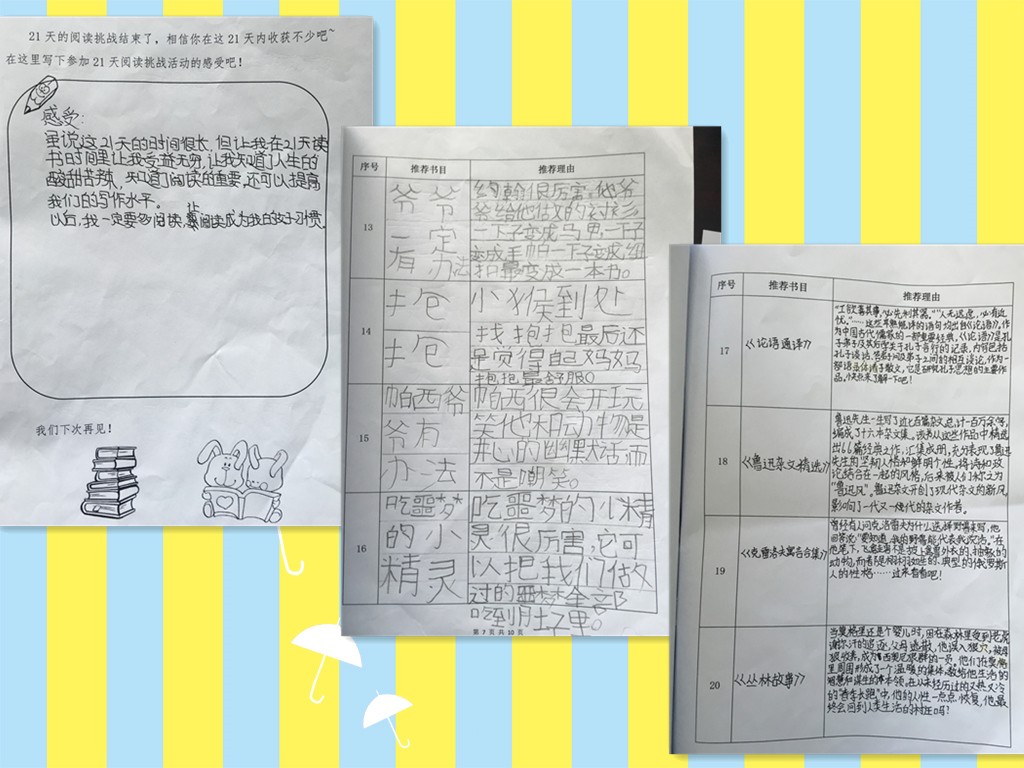 21天的阅读挑战结束了，相信你在这21天内收获不少吧~
在这里写下参加21天阅读挑战活动的感受吧！
感受：
虽说这21天的时间很长，但让我在21天读
书时间里让我受益无穷，让我知道了人生的
酸甜苦辣，知道了阅读的重要，还可以提高
我们的写作水平。
以后，我一定要多阅读，让阅读成为我的好习惯。
我们下次再见！
序号 推荐书目 推荐理由
13
爷爷
一定
有办法
约翰很厉害。他爷
爷给他做的
一下子变成马甲，一下子
变成手帕一下子变成纽
扣最变成一本书。
14
抱
抱
小猴到处
找抱抱最后还
是觉得自己妈妈
抱抱最舒服。
15
帕西爷
爷有
办法
帕西很会开玩
笑他和动物是
开心的幽默对话，而
不是嘲笑。
16
吃噩梦
的小
精灵
吃噩梦的小精
灵很厉害，它可
以把我们做
过的噩梦全部
吃到肚子里。
第 7 页 共 10 页
序号 推荐书目 推荐理由
17
《论语通译》
“工欲善其事，必先利其器。”“人无远虑，必有近
忧。”……这些耳熟能详的语句均出自《论语》，作
为中国古代儒家的一部重要经典，《论语》是孔
子弟子及其后学关于孔子言行的记录，内容包括
孔子谈话、答弟子问及弟子之间的相互谈论，作为一
部语录体诸子散文，它是研究孔子思想的主要作
品，快点来了解一下吧！
18
《鲁迅杂文精选》
鲁迅先生一生写了近七百篇杂文，总计一百万余字，
编成了十六本杂文集，该书从这些作品中精选
出66篇经典之作，汇集成册，充分表现了鲁迅
先生的坚韧人格和鲜明个性，将诗和政
论结合在一起的风格，后来被人们称之为
“鲁迅风”，鲁迅杂文开创了现代杂文的新风，
影响了一代又一代的杂文作者。
19
《克雷洛夫寓言合集》
曾经有人问克洛雷夫为什么选择野兽来写，他
回答说“要知道，我的野兽能代表我说话。”在
他笔下，飞禽走兽不是披上寓言外衣的、抽象的
动物，而是
人的性格……过来看看吧！
20
《丛林故事》
当莫格里还是个婴儿时，因在森林里受到老虎
谢尔汗的追逐，父母逃散，他误入狼穴，被母
狼收养，成为西奥尼狼群的一员，他们在莫格
里周围形成了一个温暖的集体，教给他生活的
智慧和谋生的本领，在以后
中，他的人性一点点恢复，他最
终会回到人类生活的村庄吗？